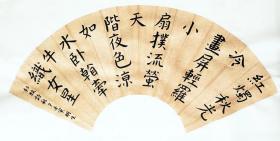 紅燭秋光
冷
畫屏輕羅
小
扇撲流螢
天
階夜色涼
如
水卧看牽
牛
織女星